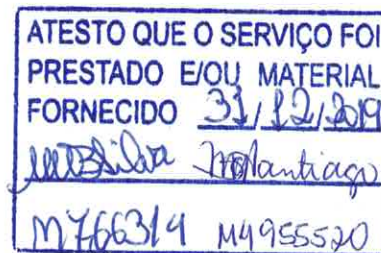 ATESTO QUE O SERVIÇO FOI
PRESTADO E/OU MATERIAL
FORNECIDO 31/12/2019
M766314 M4955520